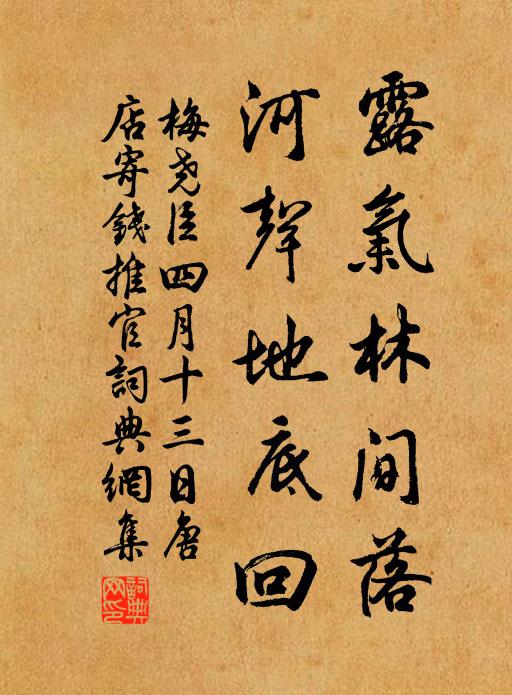 露氣林间落
河聲地底回
梅尧臣四月十三日唐
店寄錢推官詞典網集
詞典网印